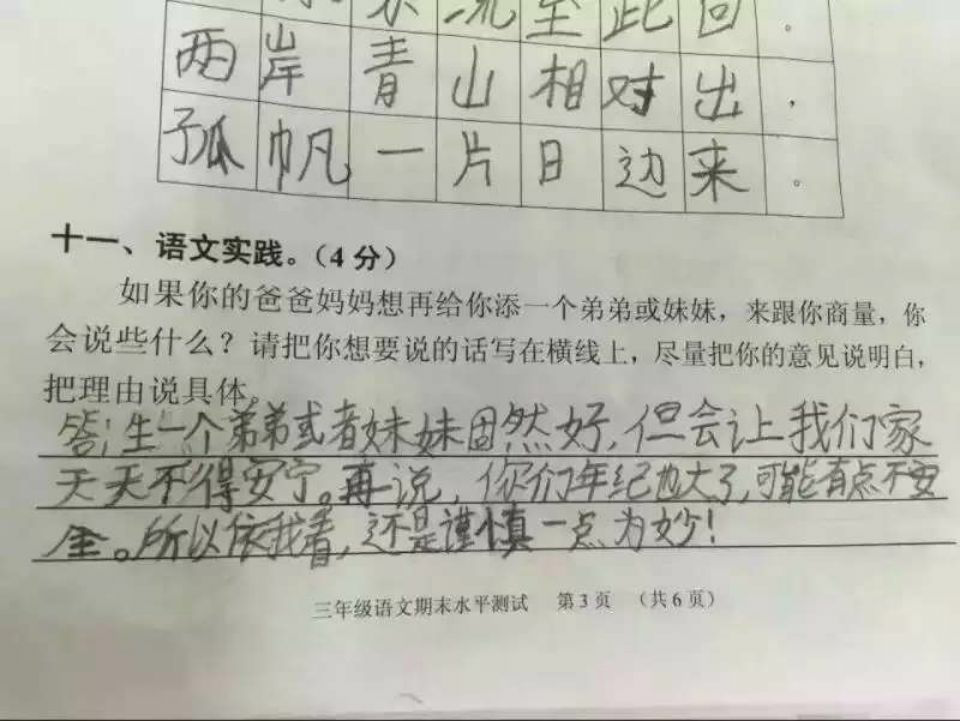 水流至此回。
两岸青山相对出，
孤帆一片日边来。
十一、语文实践。（4分）
如果你的爸爸妈妈想再给你添一个弟弟或妹妹，来跟你商量，你
会说些什么？请把你想要说的话写在横线上，尽量把你的意见说明白，
把理由说具体。
答：生一个弟弟或者妹妹固然好，但会让我们家
天天不得安宁。再说，你们年纪也大了，可能有点不安
全。所以依我看，还是谨慎一点为妙！
三年级语文期末水平测试 第3页 （共6页）